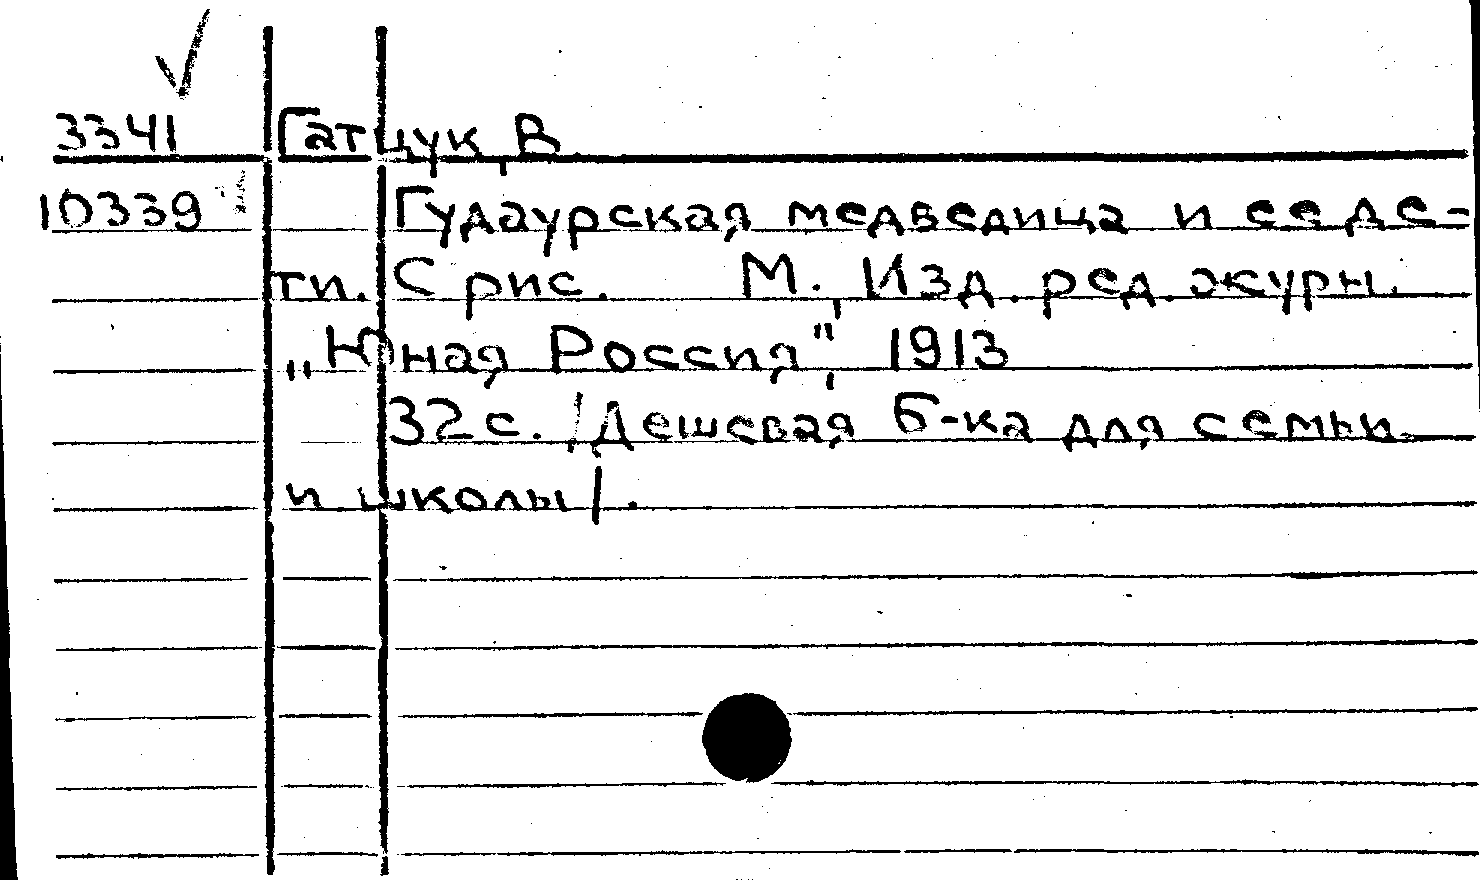 3341 Гатцук, В
10339 Гудаурская медведица и ее де-
ти. С рис. М., Изд. ред. журн.
„Юная Россия", 1913
32 с. /Дешевая б-ка для семьи
и школы/.